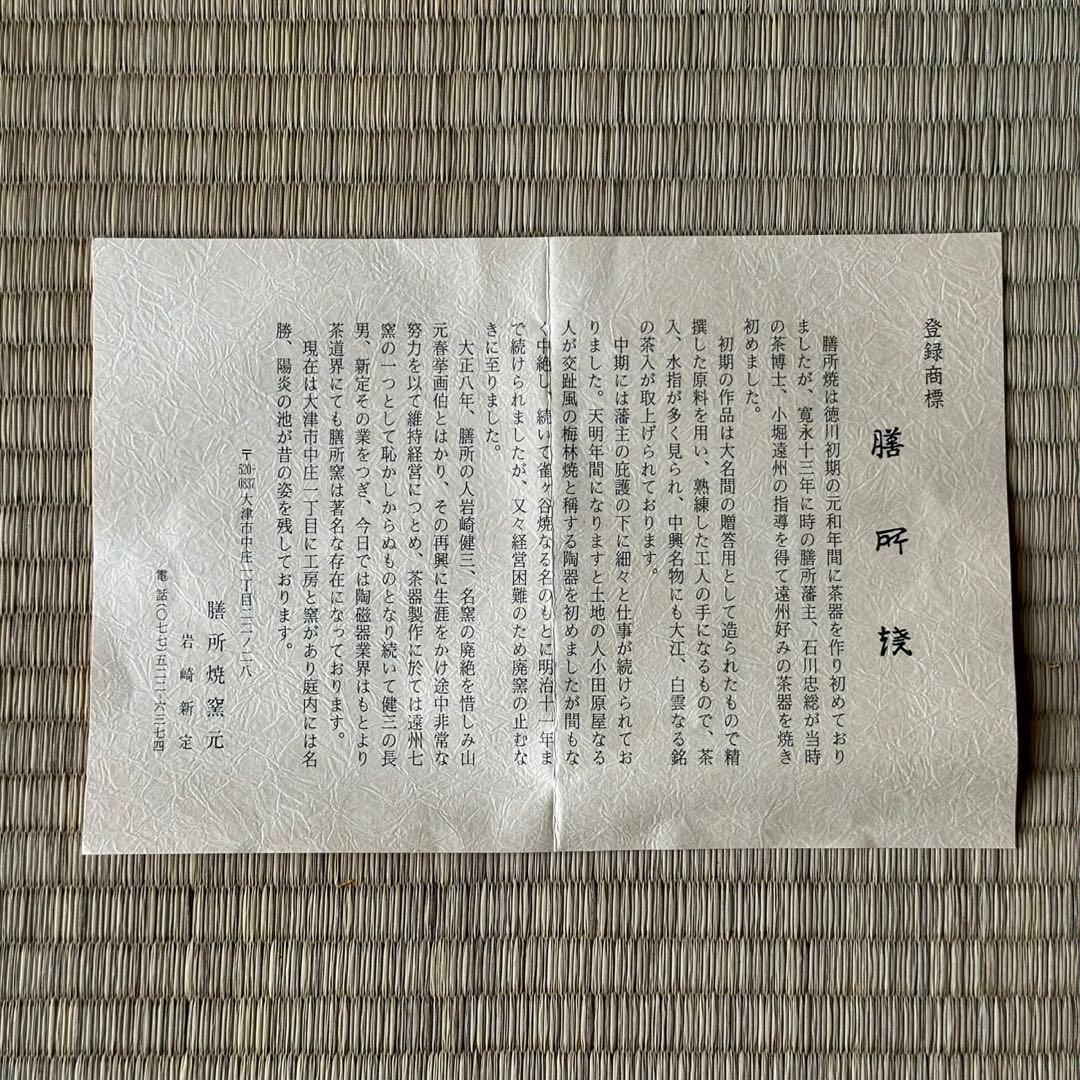 登録商標
膳所焼
膳所焼は徳川初期の元和年間に茶器を作り初めており
ましたが、寛永十三年に時の膳所藩主、石川忠総が当時
の茶博士、小堀遠州の指導を得て遠州好みの茶器を焼き
初めました。
初期の作品は大名間の贈答用として造られたもので精
撰した原料を用い、熟練した工人の手になるもので、茶
入、水指が多く見られ、中興名物にも大江、白雲なる銘
の茶入が取上げられております。
中期には藩主の庇護の下に細々と仕事が続けられてお
りました。天明年間になりますと土地の人小田原屋なる
人が交趾風の梅林焼と称する陶器を初めましたが間もな
く中絶し、続いて雀ヶ谷焼なる名のもとに明治十一年ま
で続けられましたが、又々経営困難のため廃窯の止むな
きに至りました。
大正八年、膳所の人岩崎健三、名窯の廃絶を惜しみ山
元春挙画伯とはかり、その再興に生涯をかけ途中非常な
努力を以て維持経営につとめ、茶器製作に於ては遠州七
窯の一つとして恥かしからぬものとなり続いて健三の長
男、新定その業をつぎ、今日では陶磁器業界はもとより
茶道界にても膳所窯は著名な存在になっております。
現在は大津市中庄一丁目に工房と窯があり庭内には名
勝、陽炎の池が昔の姿を残しております。
〒520-0837大津市中庄一丁目二二ノ二八
膳所焼窯元
岩崎新定
電話(〇七七)五二二-六三七四